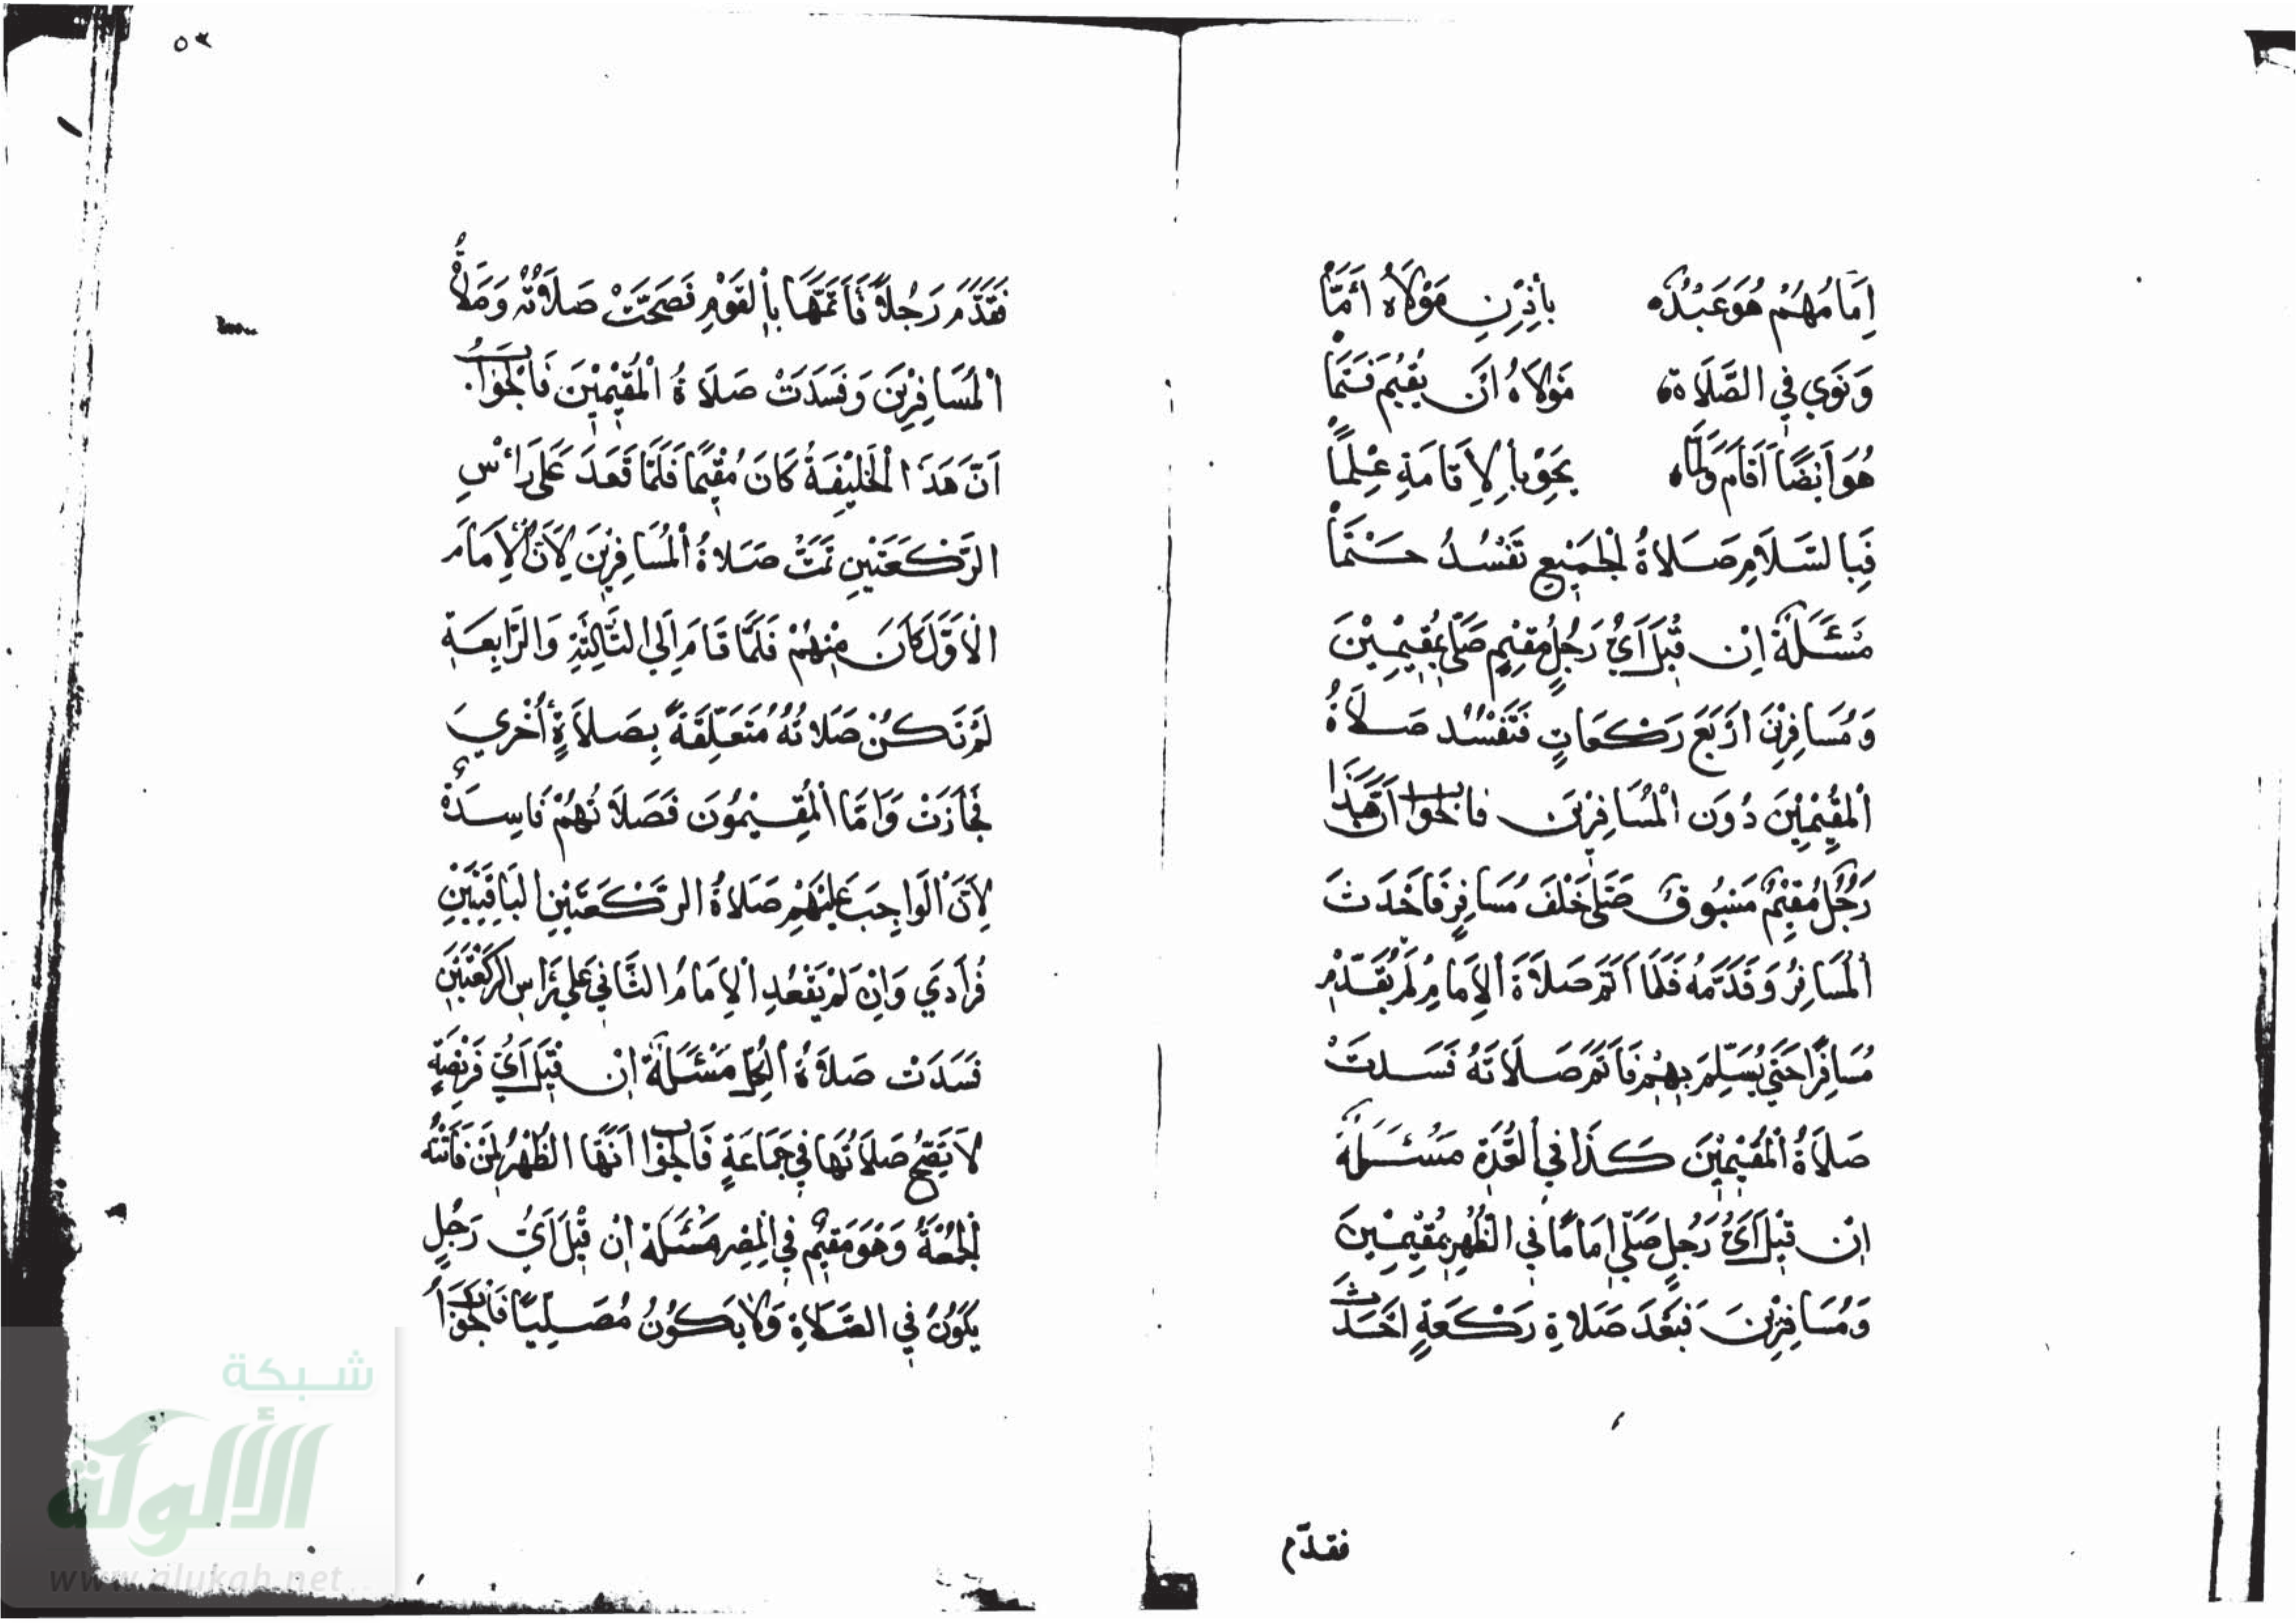 اِمَامُهُمْ هُوَ عَبْدُهُ بِأِذْنِ مَوْلَاهُ اَمَّا
وَنَوَي فِي الصَّلَاةِ مَوْلَاهُ اَنْ يُقِيْمَ ثَمَّا
هُوَ اَيْضًا اَقَامَ وَلَمَّا بِالْاِقَامَةِ عِلْمًا
فَبِالسَّلَامِ صَلَاةُ الْجَمِيْعِ تَفْسُدُ حَتْمًا
مَسْئَلَةٌ اِنْ قِيْلَ اَيُّ رَجُلٍ مُقِيْمٍ صَلَّى بِمُقِيْمِيْنَ
وَمُسَافِرِيْنَ اَرْبَعَ رَكْعَاتٍ فَتَفْسُدُ صَلَاةُ
الْمُقِيْمِيْنَ دُوْنَ الْمُسَافِرِيْنَ فالجواب اَنَّ هَذَا
رَجُلٌ مُقِيْمٌ مَسْبُوقٌ صَلَّى خَلْفَ مُسَافِرٍ فَاَحْدَثَ
الْمُسَافِرُ وَقَدَّمَهُ فَلَمَّا اَتَمَّ صَلَاةَ الْاِمَامِ لَمْ يُقَدِّمْ
مُسَافِرًا حَتَّي يُسَلِّمَ بِهِمْ فَاَتَمَّ صَلَاتَهُ فَسَدَتْ
صَلَاةُ الْمُقِيْمِيْنَ كَذَا فِي الْعُدَّةِ مَسْئَلَةٌ
اِنْ قِيْلَ اَيُّ رَجُلٍ صَلَّي اِمَامًا فِي الظُّهْرِ بِمُقِيْمِيْنَ
وَمُسَافِرِيْنَ فَبَعْدَ صَلَاةِ رَكْعَةٍ اَحْدَثَ
فقدّم
٥٣
فَقَدَّمَ رَجُلاً فَاَتَمَّهَا بِالْقَوْمِ فَصَحَّتْ صَلَاتُهُ وَصَلَاةُ
الْمُسَافِرِيْنَ وَفَسَدَتْ صَلَاةُ الْمُقِيْمِيْنَ فَالْجَوَابُ
اَنَّ هَذَا الْخَلِيْفَةُ كَانَ مُقِيْمًا فَلَمَّا قَعَدَ عَلَى رَأْسِ
الرَّكْعَتَيْنِ تَمَّتْ صَلَاةُ الْمُسَافِرِيْنَ لِاَنَّ الْاِمَامَ
الْاَوَّلَ كَانَ مِنْهُمْ فَلَمَّا قَامَ اِلَي الثَّالِثَةِ وَالرَّابِعَةِ
لَمْ تَكُنْ صَلَاتُهُ مُتَعَلِّقَةً بِصَلَاةٍ اُخْرَي
فَجَازَتْ وَاَمَّا الْمُقِيْمُوْنَ فَصَلَاتُهُمْ فَاسِدَةٌ
لِاَنَّ الْوَاجِبَ عَلَيْهِمْ صَلَاةُ الرَّكْعَتَيْنِ الْبَاقِيَتَيْنِ
فُرَادَي وَاِنْ لَمْ يَقْعُدِ الْاِمَامُ الثَّانِي عَلَي رَاْسِ الرَّكْعَتَيْنِ
فَسَدَتْ صَلَاةُ الْكُلِّ مَسْئَلَةٌ اِنْ قِيْلَ اَيُّ فَرِيْضَةٍ
لَا تَصِحُّ صَلَاتُهَا فِي جَمَاعَةٍ فَالْجَوَابُ اَنَّهَا الظُّهْرُ لِمَنْ فَاتَتْهُ
الْجُمُعَةُ وَهُوَ مُقِيْمٌ فِي الْمِصْرِ مَسْئَلَةٌ اِنْ قِيْلَ اَيُّ رَجُلٍ
يَكُوْنُ فِي الصَّلَاةِ وَلَا يَكُوْنُ مُصَلِّيًا فَالْجَوَابُ
شبكة
الألوكة
www.alukah.net